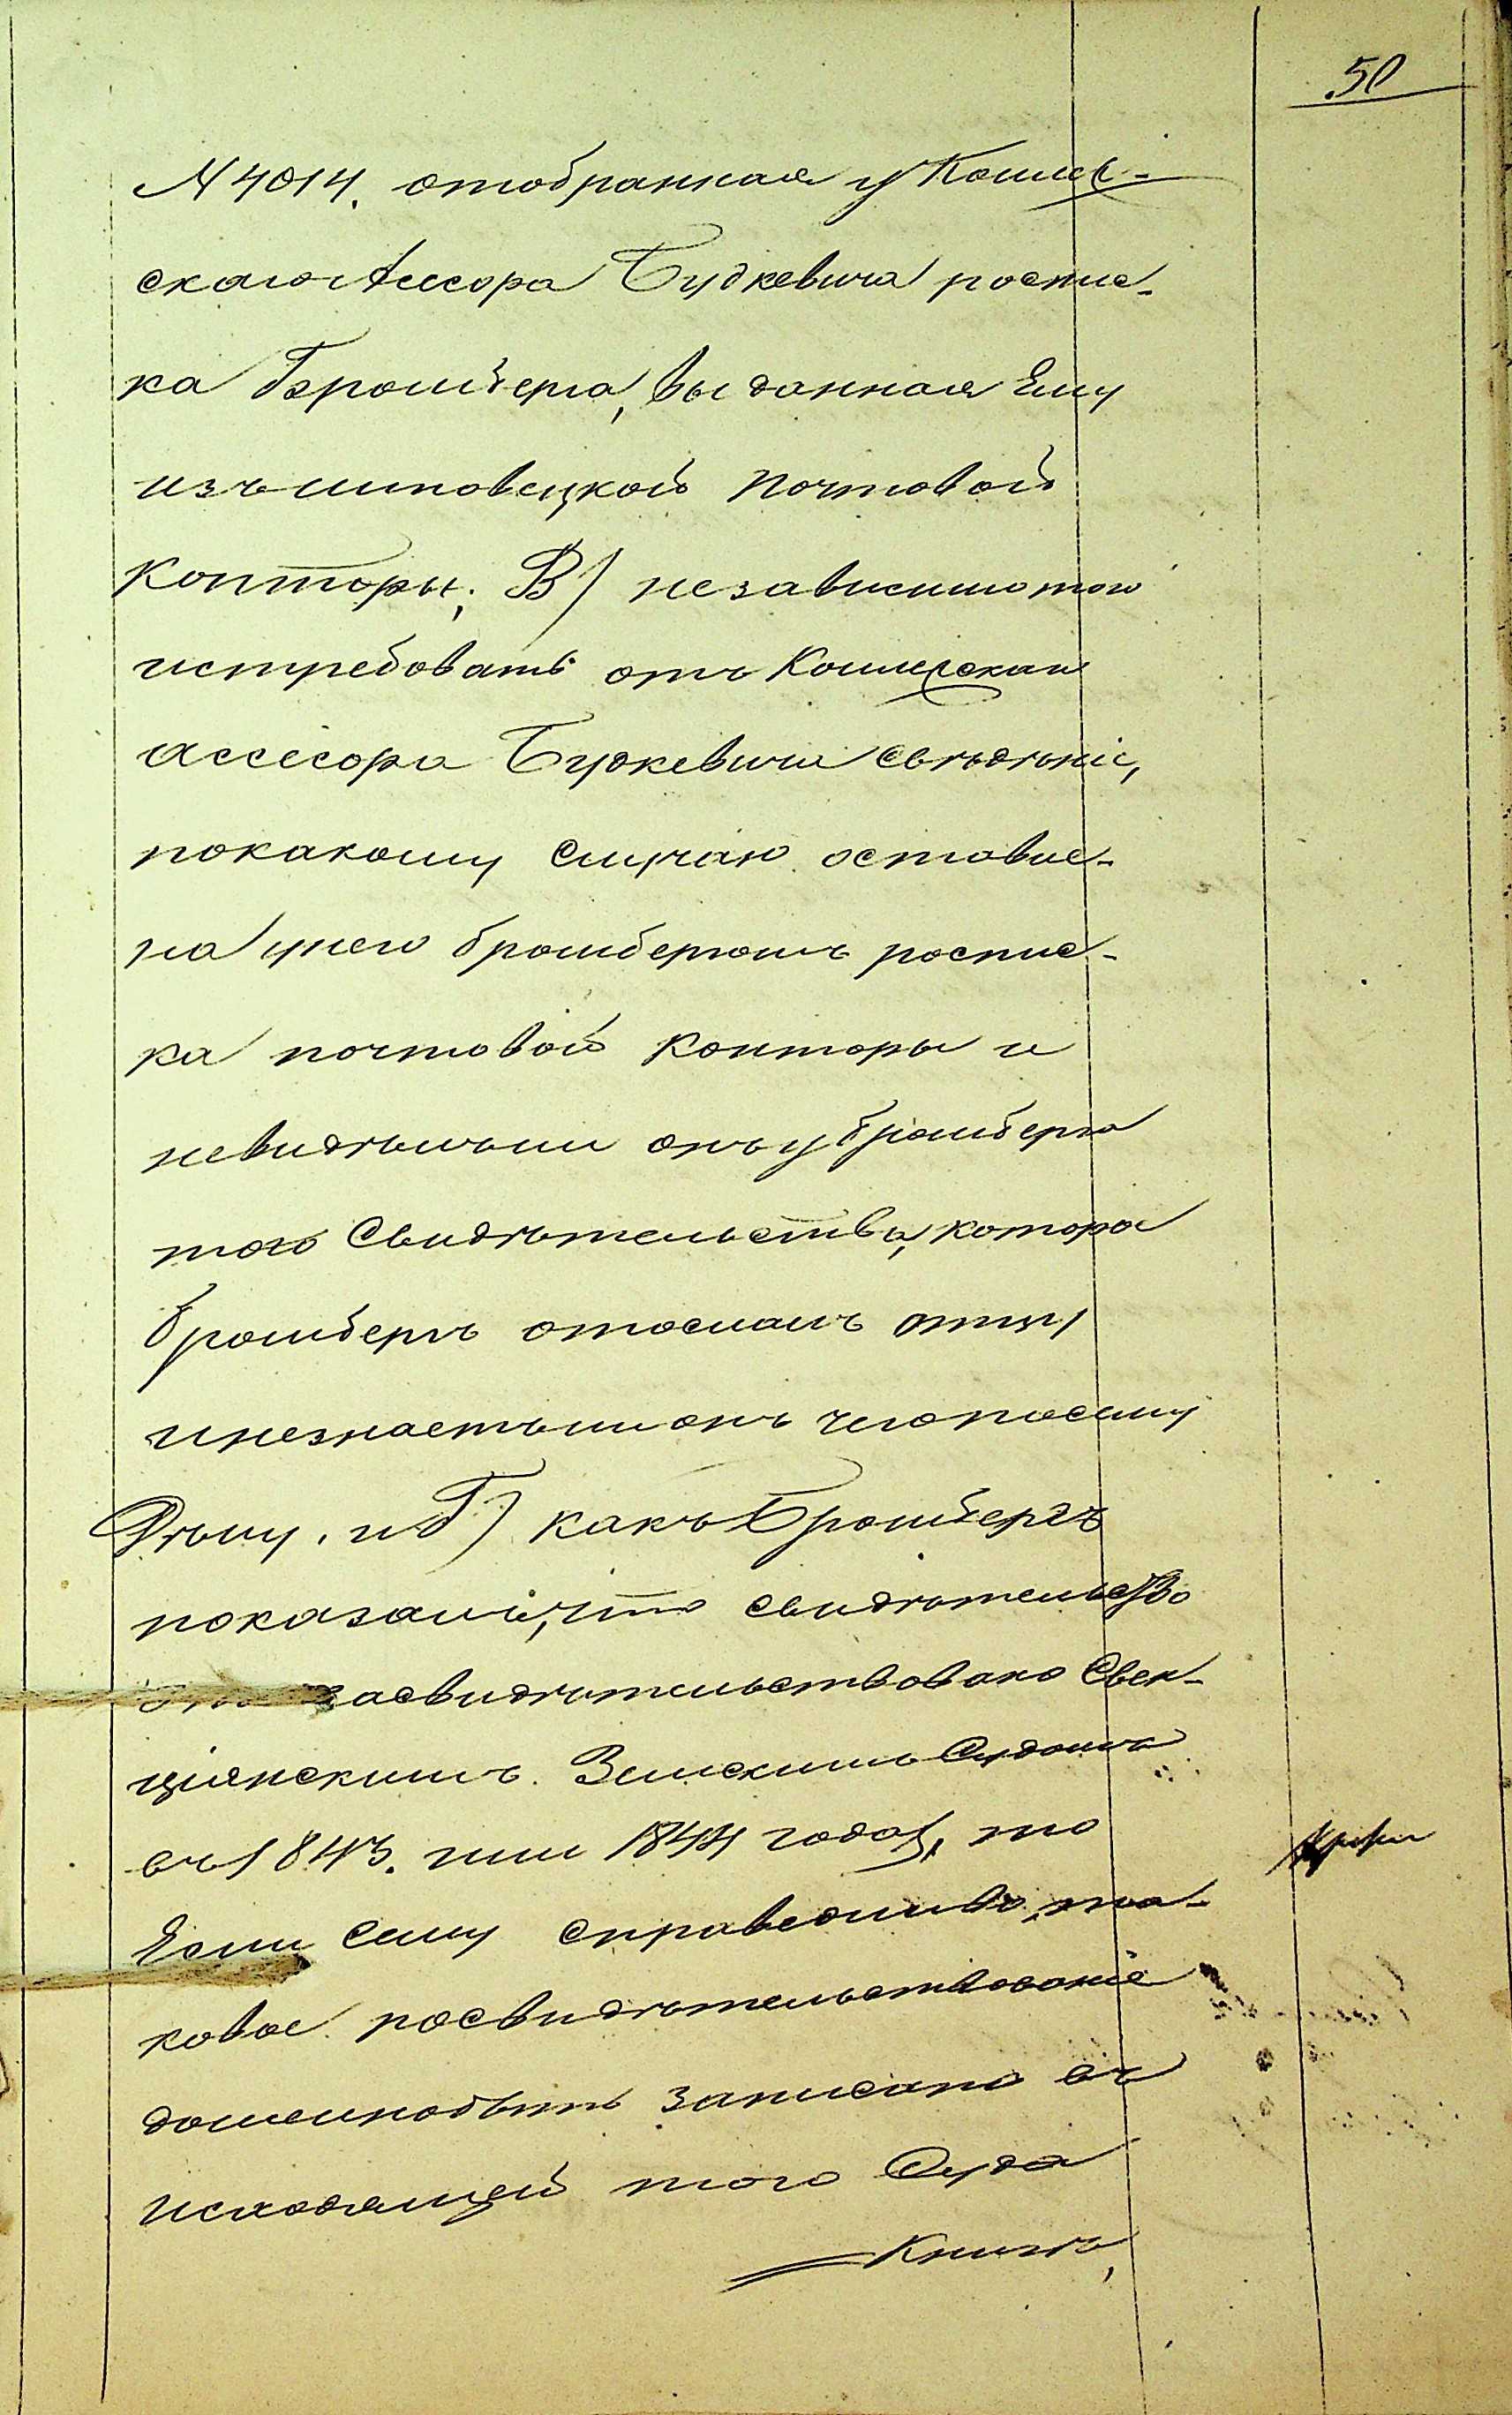 50
№ 4014. отобранная у Коллеж-
скаго Ассесора Будкевича роспис-
ка Бромберга, выданная Ему
изъ почтовой
Конторы; В) независимо того
истребовать отъ Коллежскаго
ассесора Будкевича сведѣніе,
по какому случаю оставле-
на у него бромбергомъ роспис-
ка почтовой конторы и
невидѣлъ ли онъ у бромберга
того Свидѣтельства, которое
бромбергъ отослалъ отцу
и незнаетъ ли онъ чего по сему
Дѣлу. и Г) какъ Бромбергъ
показалъ, что свидѣтельство
это засвидѣтельствовано Свен-
цянскимъ Земскимъ Судомъ
въ 1843. или 1844 годахъ, то
Если сему справедливо, та-
ковое засвидѣтельствованіе
должно быть записано въ
исходящей того Суда
Книгѣ,